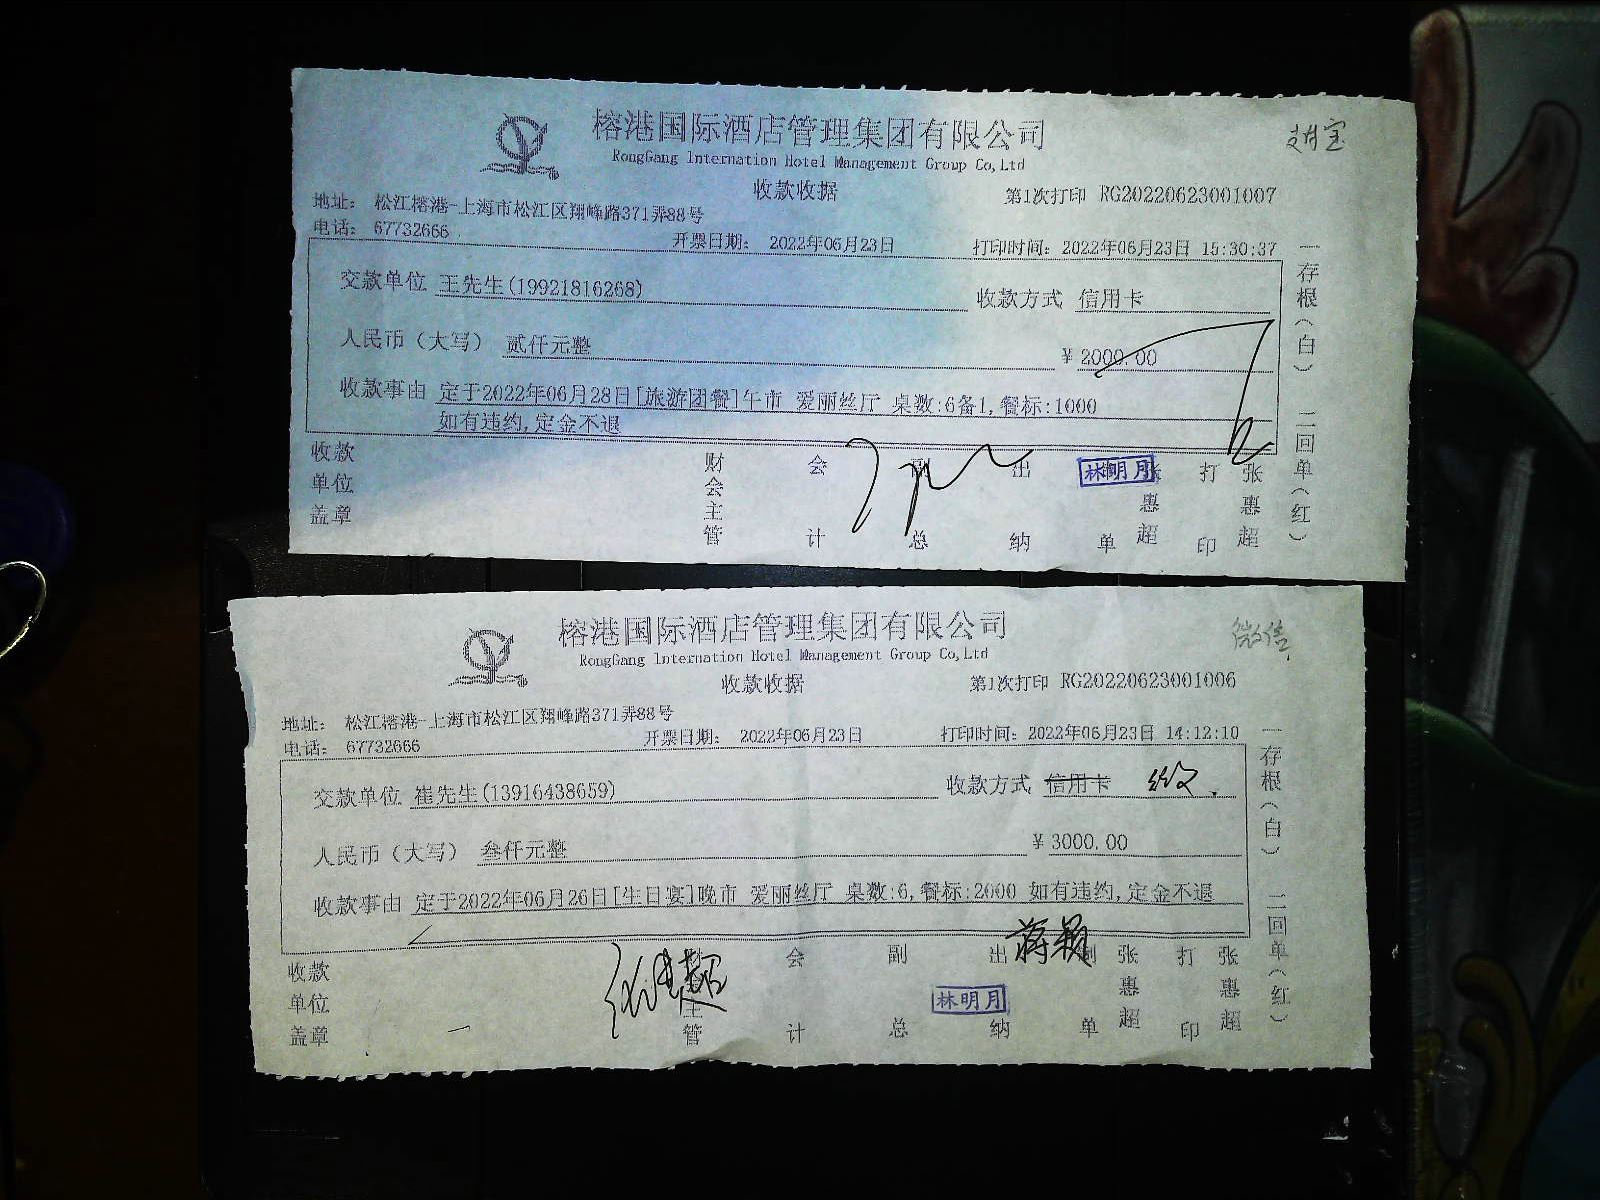 榕港国际酒店管理集团有限公司
支付宝
RongGang Internation Hotel Management Group Co,Ltd
收款收据
第1次打印 RG20220623001007
地址: 松江榕港-上海市松江区翔峰路371弄88号
电话: 67732666
开票日期: 2022年06月23日
打印时间: 2022年06月23日 15:30:37
交款单位 王先生(19921816268)
收款方式 信用卡
人民币(大写) 贰仟元整
¥ 2000.00
收款事由 定于2022年06月28日[旅游团餐]午市 爱丽丝厅 桌数:6备1,餐标:1000
如有违约,定金不退
收款单位盖章
财会主管
会计
副总
出纳
林明月
单
张惠超
打印
张惠超
一存根(白) 二回单(红)
榕港国际酒店管理集团有限公司
微信
RongGang Internation Hotel Management Group Co,Ltd
收款收据
第1次打印 RG20220623001006
地址: 松江榕港-上海市松江区翔峰路371弄88号
电话: 67732666
开票日期: 2022年06月23日
打印时间: 2022年06月23日 14:12:10
交款单位 崔先生(13916438659)
收款方式 信用卡
人民币(大写) 叁仟元整
¥ 3000.00
收款事由 定于2022年06月26日[生日宴]晚市 爱丽丝厅 桌数:6,餐标:2000 如有违约,定金不退
收款单位盖章
张惠超
主管
会计
副总
出纳
蒋颖
林明月
单
张惠超
打印
张惠超
一存根(白) 二回单(红)